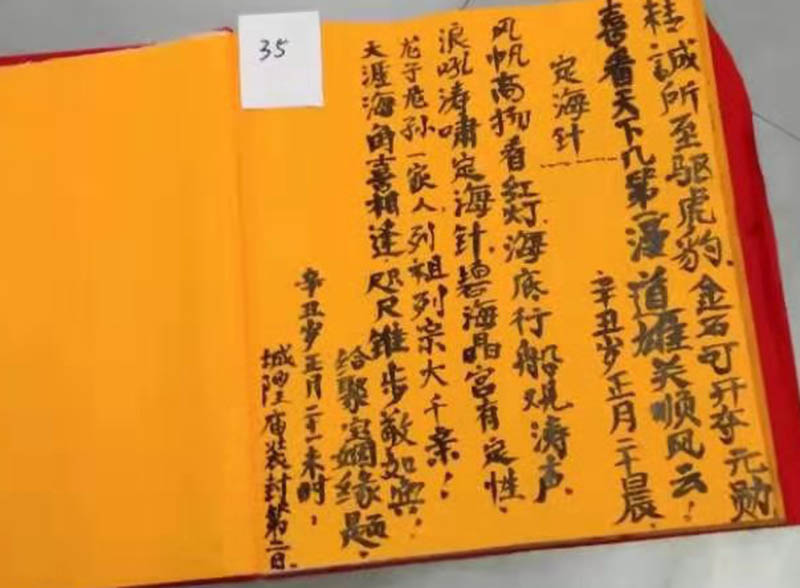 精诚所至驱虎豹.金石可开夺元勋
喜看天下几第一漫道雄关顺风云!
辛丑岁正月二十晨.
定海针
风帆高扬看红灯.海底行船观涛声.
浪吼涛鸣定海针.碧海晶宫有定性.
龙子龙孙一家人.列祖列宗大千亲!
天涯海角喜相逢.咫尺锥步敬如宾!
给聚定姻缘题.
辛丑岁正月二十一未时!
城隍庙装封第二日.
35